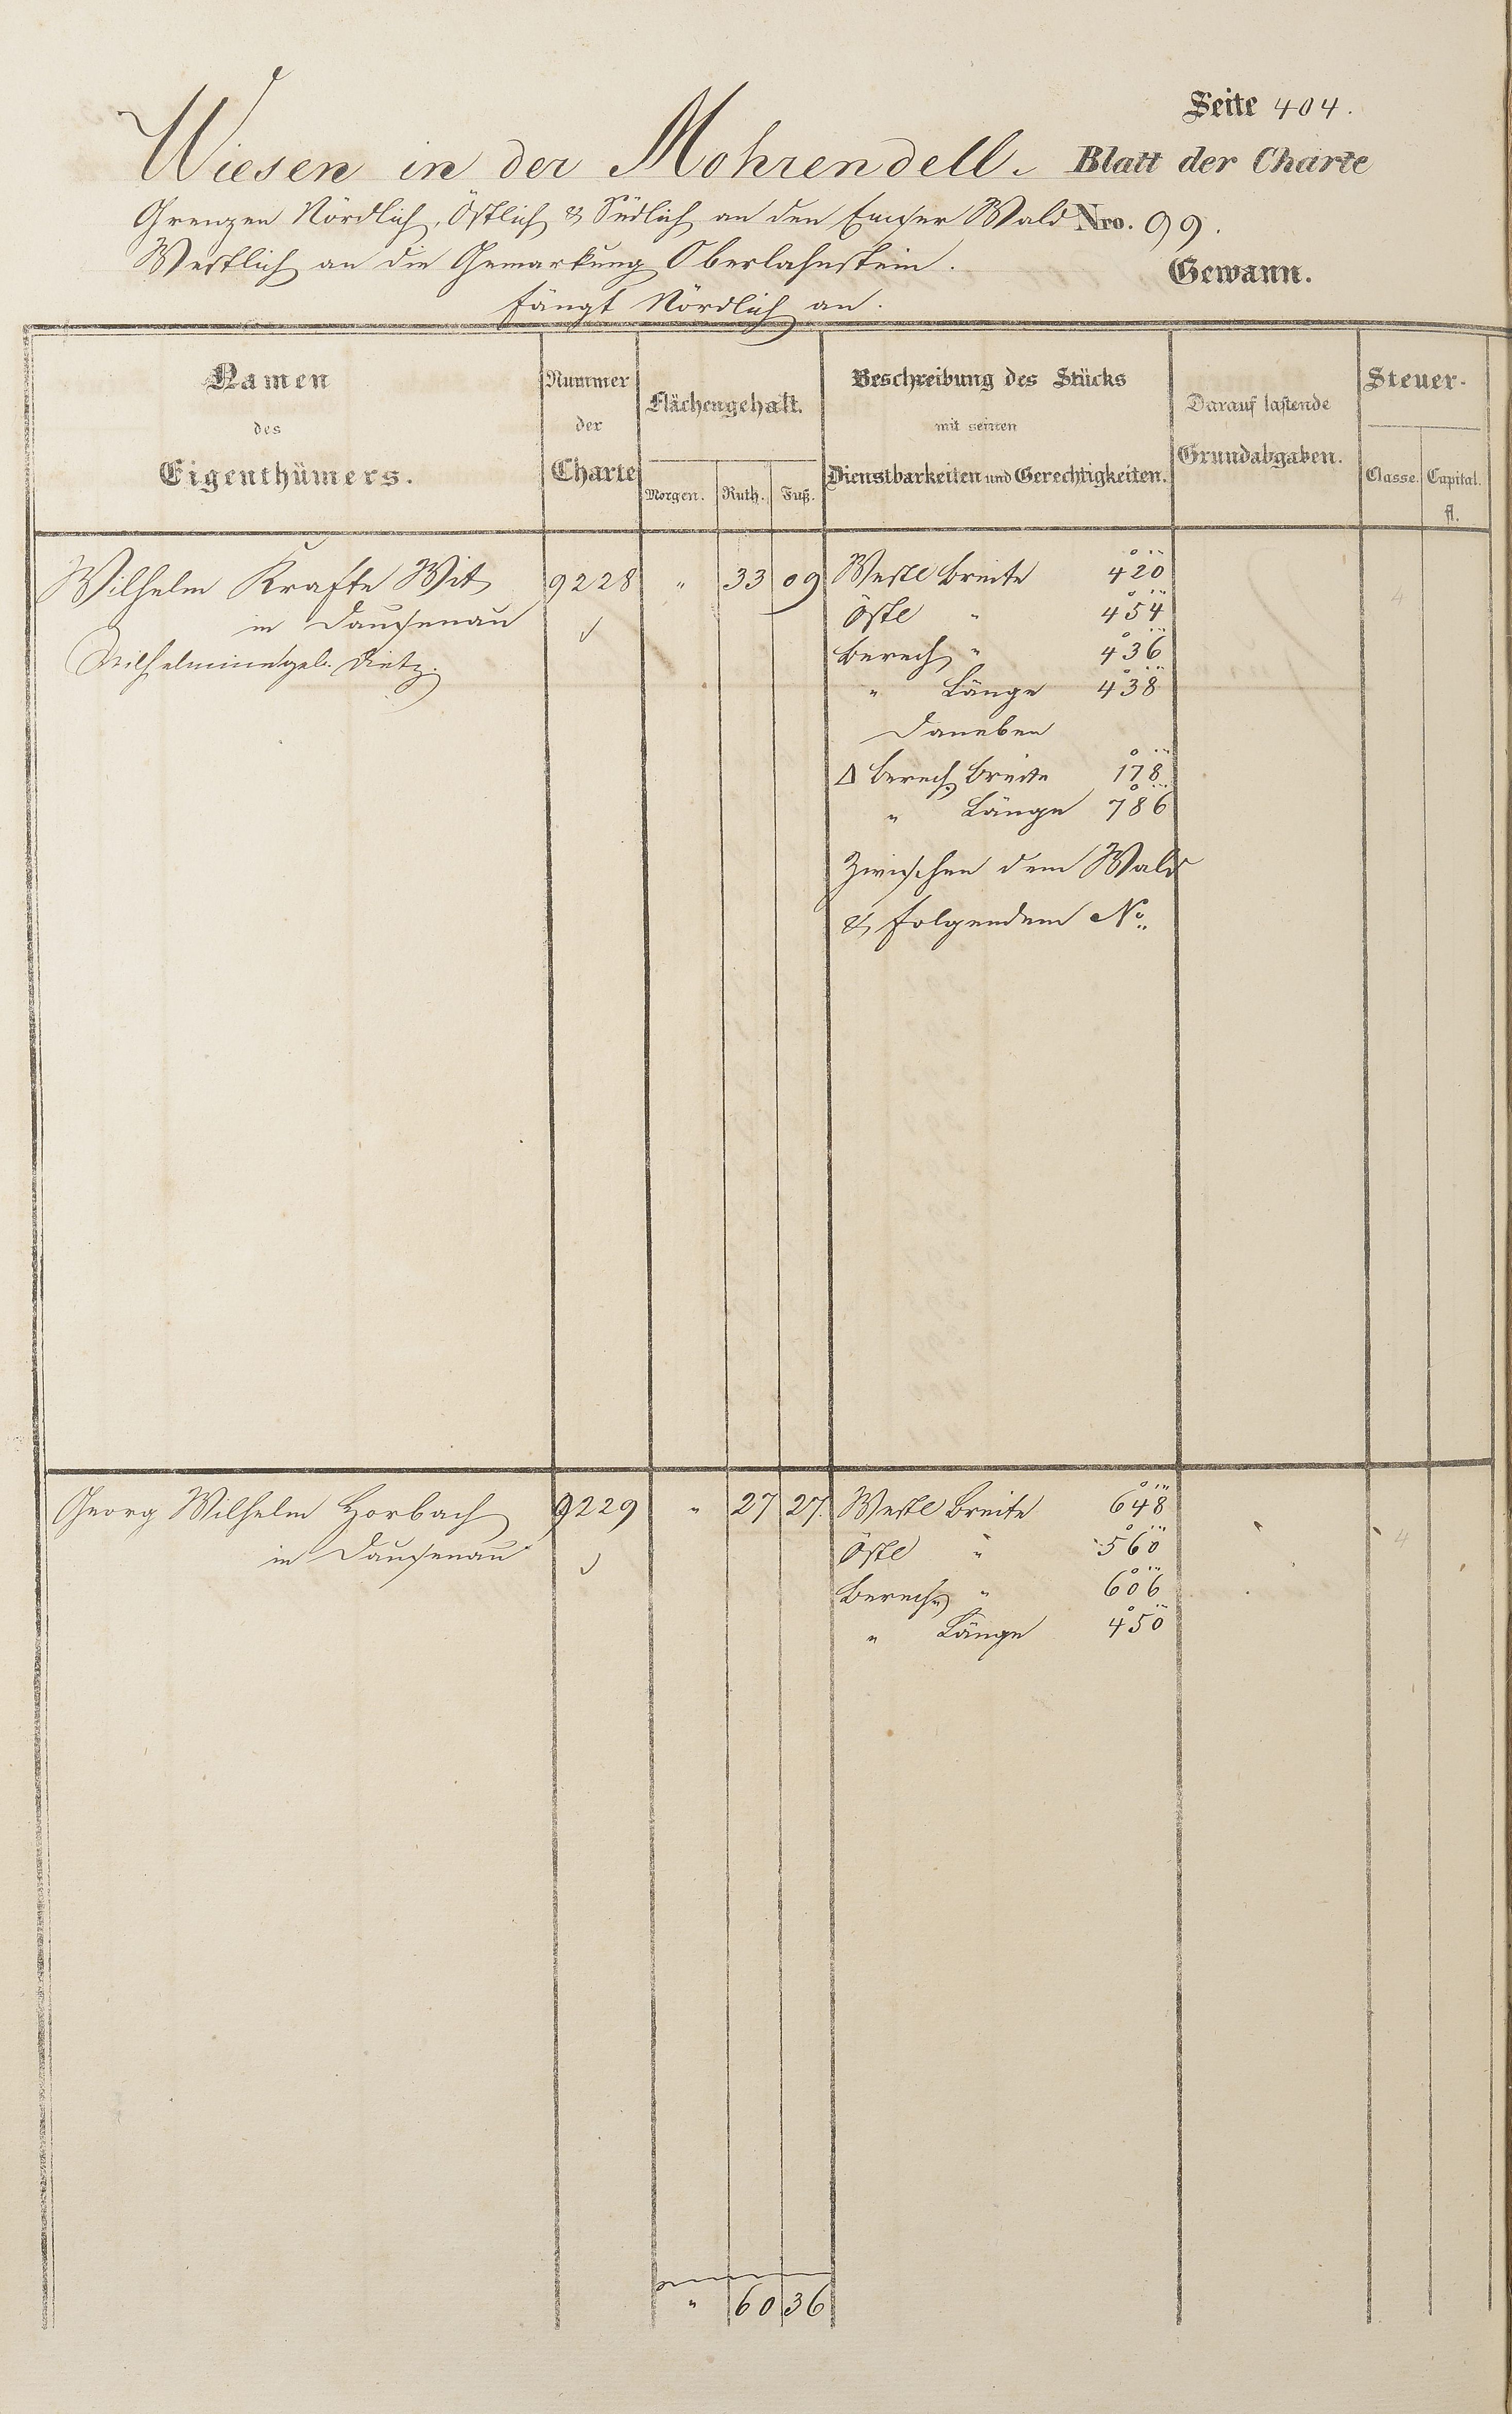 Seite 404.
Wiesen in der Mohrendell. Blatt der Charte
Grenzen Nördlich, Östlich & Südlich an den Emser Wald Nro. 99.
Westlich an die Gemarkung Oberlahnstein. Gewann.
fängt Nördlich an.
Namen des Eigenthümers.
Nummer der Charte
Flächengehalt.
Morgen. Ruth. Fuß.
Beschreibung des Stücks
mit seinen
Dienstbarkeiten und Gerechtigkeiten.
Darauf lastende
Grundabgaben.
Steuer-
Classe. Capital.
fl.
Wilhelm Krafts Wit 9228 " 33 09 Westl Breite 420
in Dausenau Östl " 454
Wilhelmine geb. Dietz. Berech " 436
" Länge 438
Daneben
Δ berech Breite 178
" Länge 786
Zwischen dem Wald
& folgendem No
4
Georg Wilhelm Horbach 9229 " 27 27. Westl Breite 648
in Dausenau Östl " 560
Berech " 606
" Länge 450
4
" 60 36